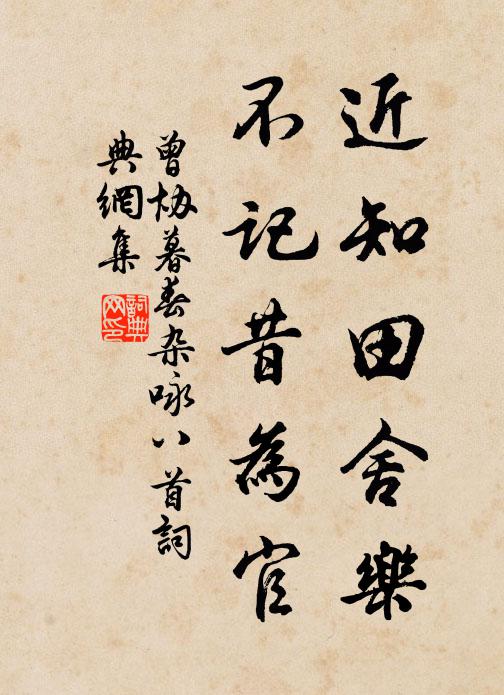 近知田舍樂
不記昔為官
曾協暮春杂咏八首詞
典網集
詞典
网印